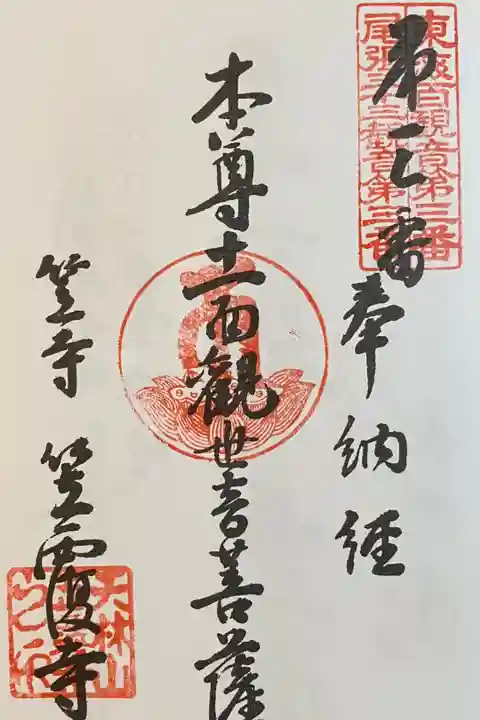 東海百觀音第三番
尾張三十三觀音第三番
第三番 奉納經
本尊十一面觀世音菩薩
笠寺 笠覆寺